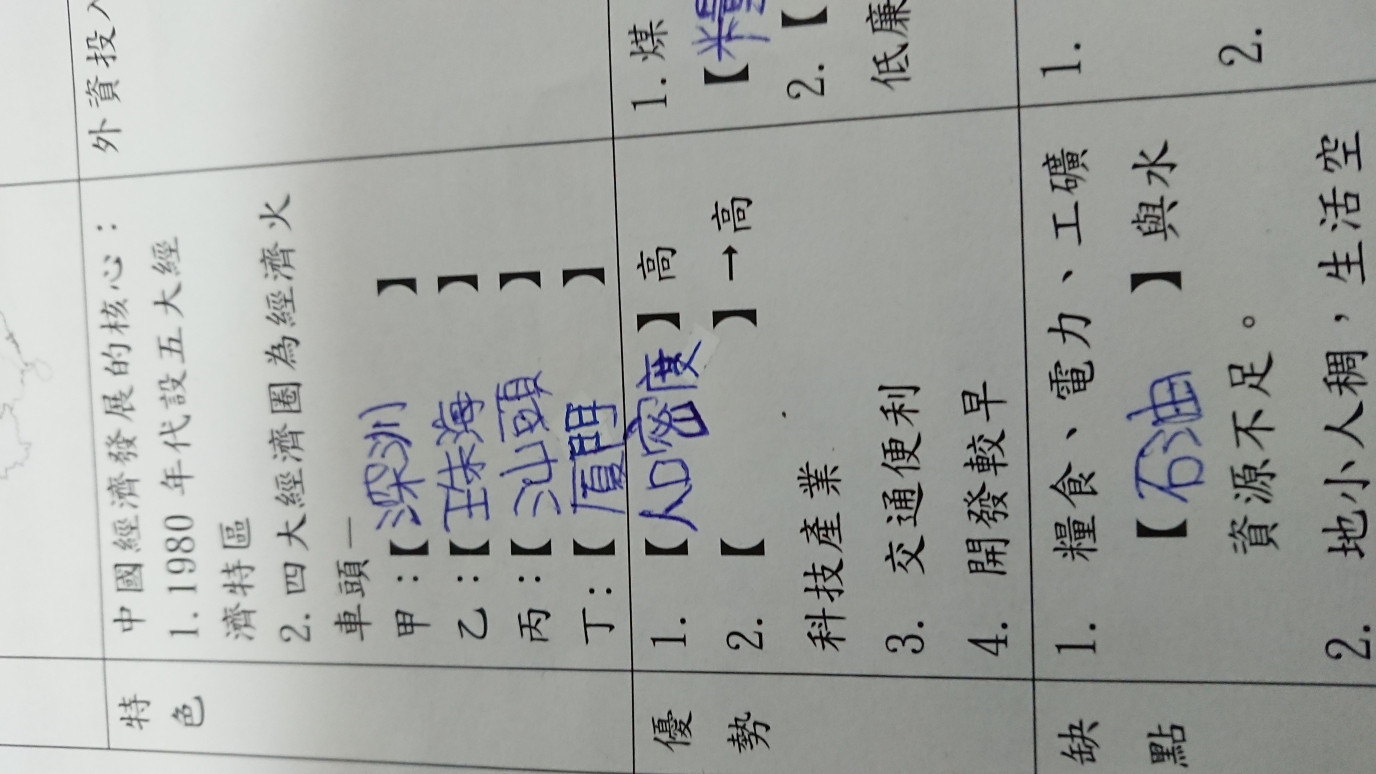 外資投入
特色
中國經濟發展的核心：
1. 1980 年代設五大經
濟特區
2. 四大經濟圈為經濟火
車頭－
甲：【深圳】
乙：【珠海】
丙：【汕頭】
丁：【廈門】
優勢
1. 【人口密度】高
2. 【 】→高
科技產業
3. 交通便利
4. 開發較早
1. 煤
【
2. 【
低廉
缺點
1. 糧食、電力、工礦
【石油】與水
資源不足。
2. 地小人稠，生活空
1.
2.